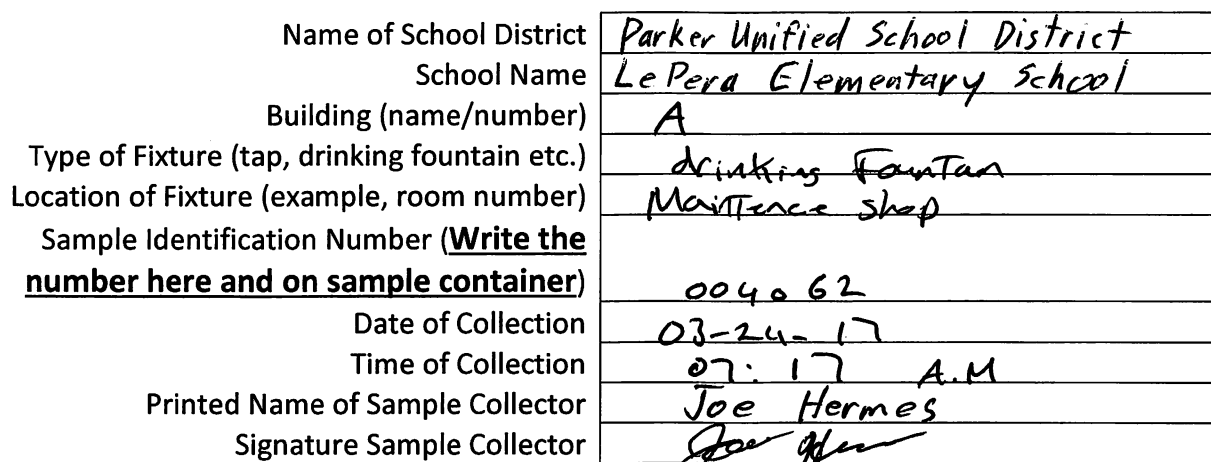 Name of School District Parker Unified School District
School Name Le Pera Elementary School
Building (name/number) A
Type of Fixture (tap, drinking fountain etc.) drinking FounTan
Location of Fixture (example, room number) MainTence shop
Sample Identification Number (Write the
number here and on sample container) 004062
Date of Collection 03-24-17
Time of Collection 07:17 A.M
Printed Name of Sample Collector Joe Hermes
Signature Sample Collector